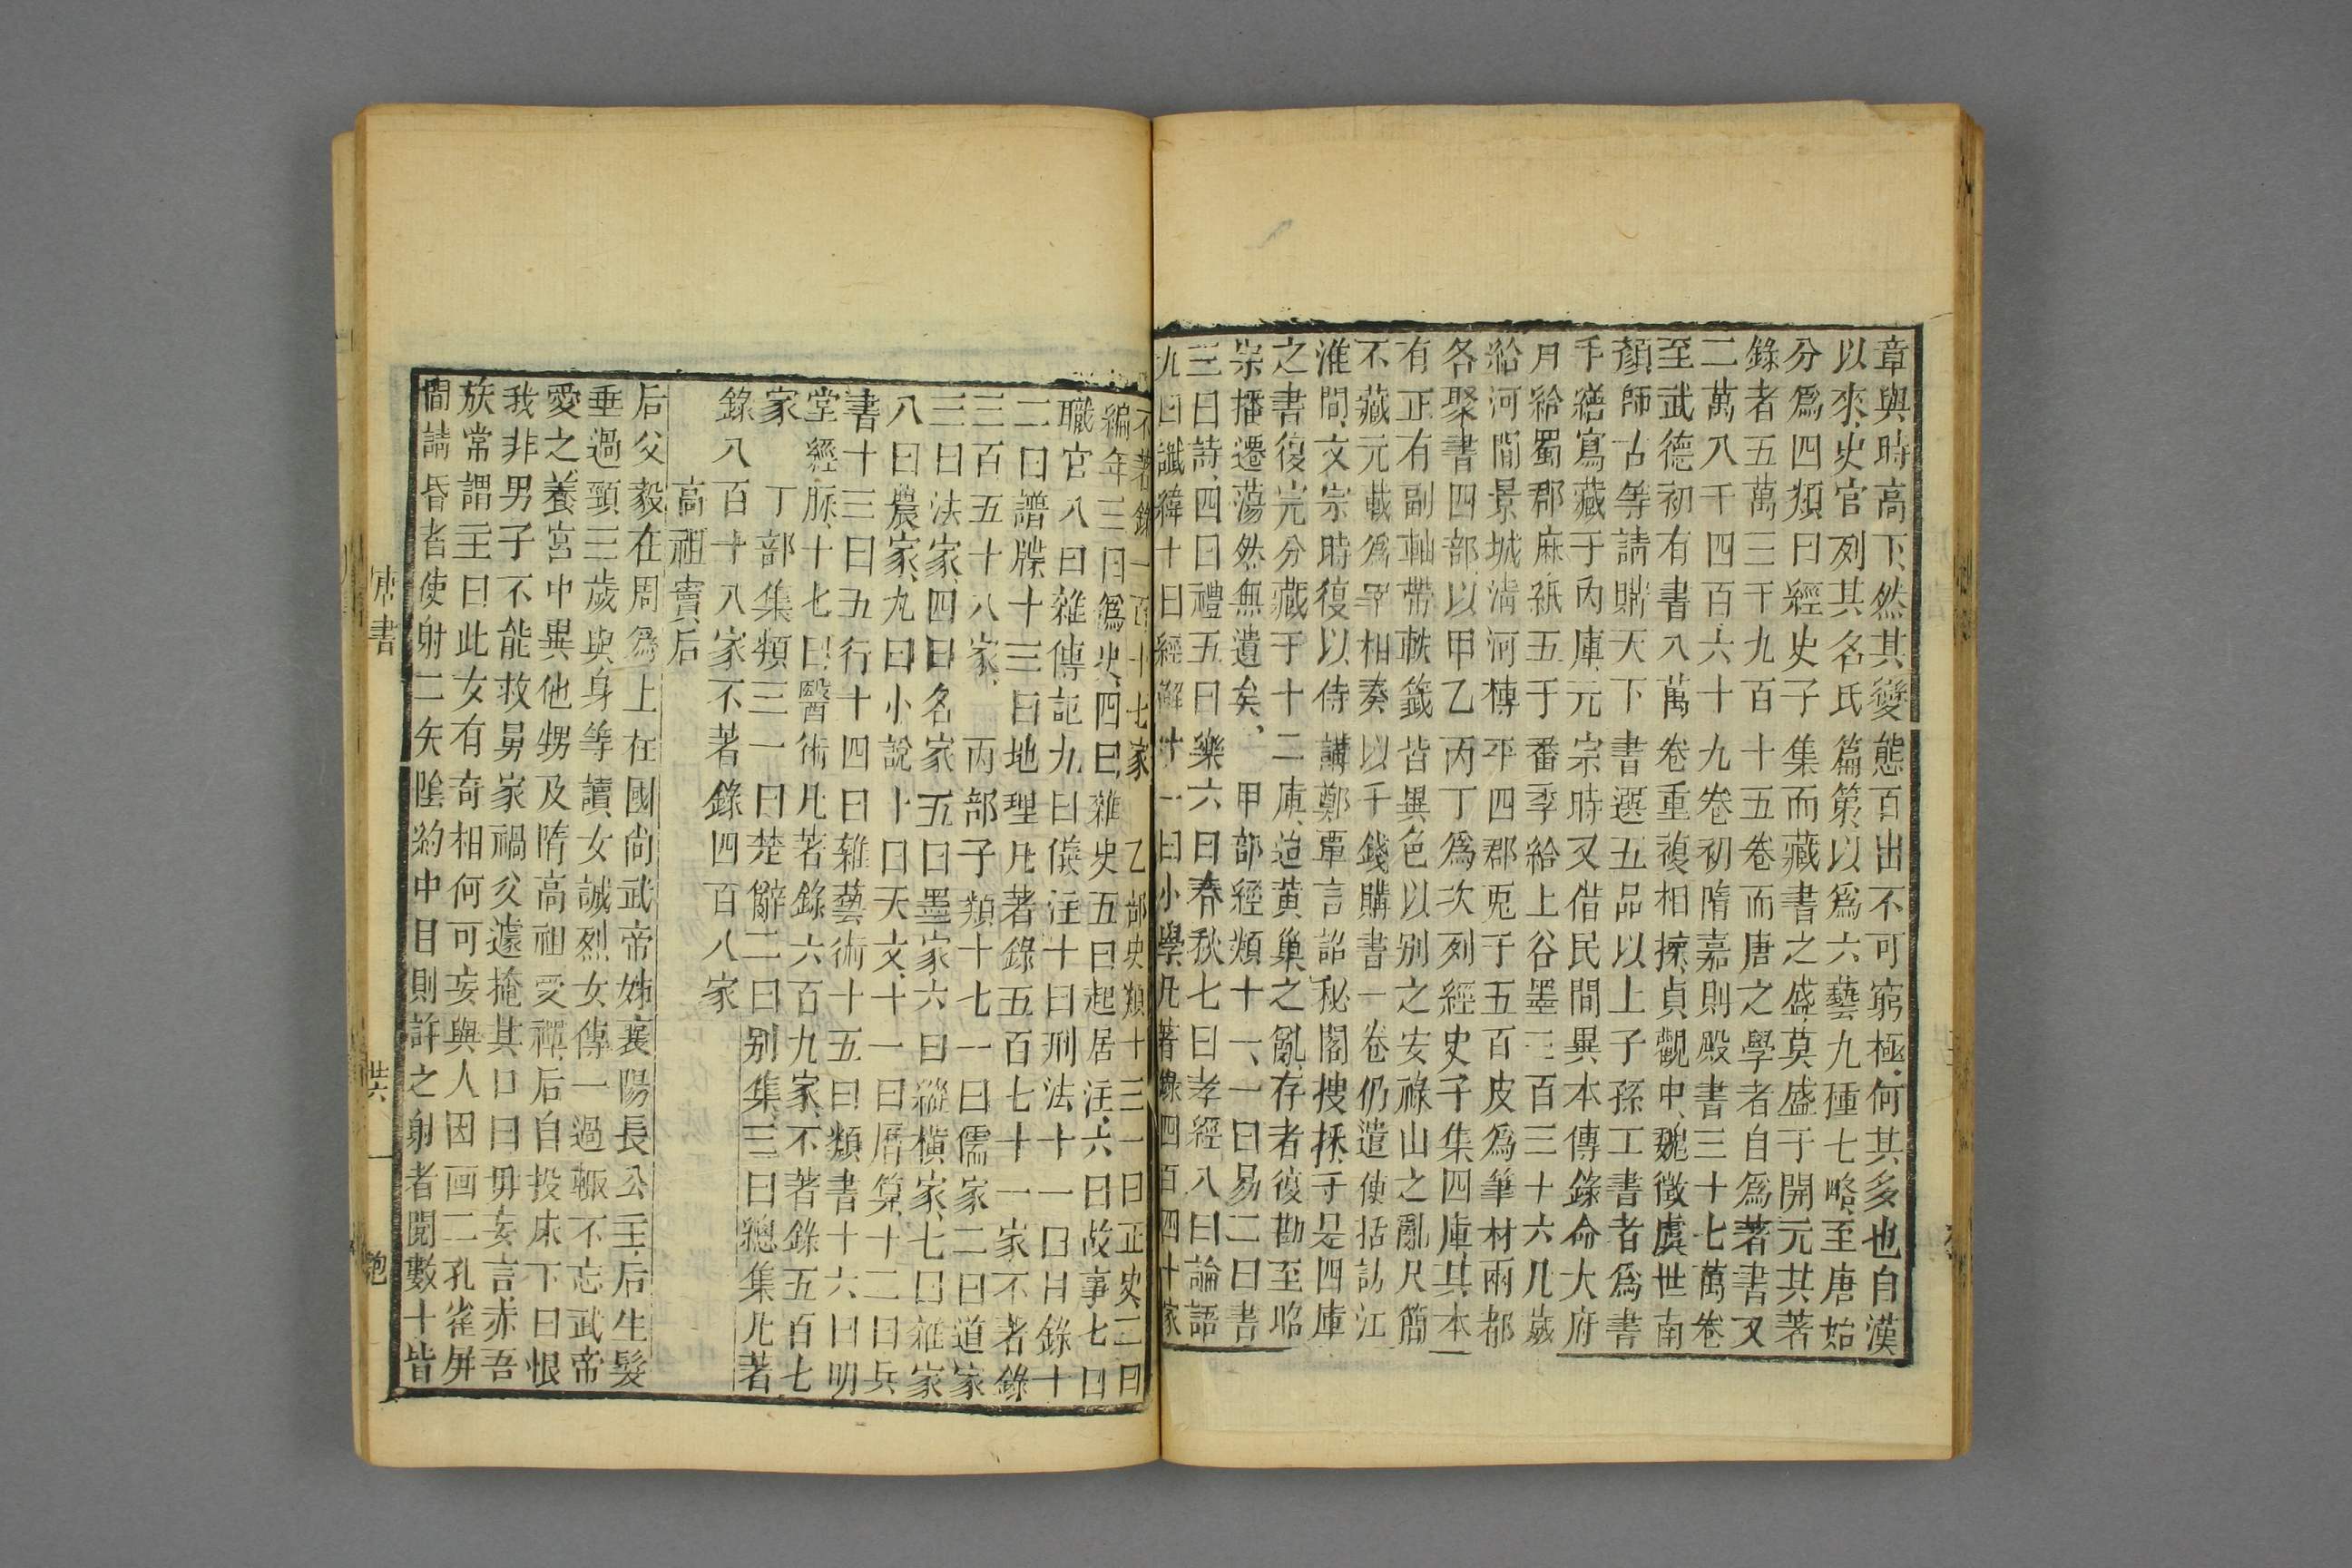 章與時高下然其變態百出不可窮極何其多也自漢
以來史官列其名氏篇第以爲六藝九種七略至唐始
分爲四類曰經史子集而藏書之盛莫盛于開元其著
錄者五萬三千九百十五卷而唐之學者自爲著書又
二萬八千四百六十九卷初隋嘉則殿書三十七萬卷
至武德初有書八萬卷重複相揉貞觀中魏徵虞世南
顏師古等請購天下書選五品以上子孫工書者爲書
手繕寫藏于內庫元宗時又借民間異本傳錄命大府
月給蜀郡麻紙五于番季給上谷墨三百三十六凡歲
給河間景城淸河博平四郡兎千五百皮爲筆材兩都
各聚書四部以甲乙丙丁爲次列經史子集四庫其本
有正有副軸帶軼籤皆異色以別之安祿山之亂尺簡
不藏元載爲宰相奏以千錢購書一卷仍遣使括訪江
淮間文宗時復以侍講鄭覃言詔秘閣搜採于是四庫
之書復完分藏于十二庫迨黃巢之亂存者復勘至昭
宗播遷蕩然無遺矣甲部經類十一一曰易二曰書
三曰詩四曰禮五曰樂六曰春秋七曰孝經八曰論語
九曰讖緯十曰經解十一曰小學凡著錄四百四十家
不著錄一百十七家 乙部史類十三一曰正史二曰
編年三曰僞史四曰雜史五曰起居注六曰故事七曰
職官八曰雜傳記九曰儀注十曰刑法十一曰目錄十
二曰譜牒十三曰地理凡著錄五百七十一家不著錄
三百五十八家 丙部子類十七一曰儒家二曰道家
三曰法家四曰名家五曰墨家六曰縱橫家七曰雜家
八曰農家九曰小說十曰天文十一曰曆算十二曰兵
書十三曰五行十四曰雜藝術十五曰類書十六曰明
堂經脈十七曰醫術凡著錄六百九家不著錄五百七
家 丁部集類三一曰楚辭二曰別集三曰總集凡著
錄八百十八家不著錄四百八家
高祖竇后
后父毅在周爲上柱國尙武帝姊襄陽長公主后生髮
垂過頸三歲與身等讀女誡烈女傳一過輒不忘武帝
愛之養宮中異他甥及隋高祖受禪后自投床下曰恨
我非男子不能救舅家禍父遽掩其口曰毋妄言赤吾
族常謂主曰此女有奇相何可妄與人因画二孔雀屏
間請昏者使射二矢陰約中目則許之射者閱數十皆
唐書 一